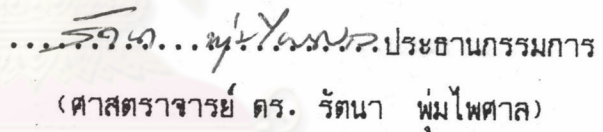 .....รัตนา...พุ่มไพศาล.ประธานกรรมการ
(ศาสตราจารย์ ดร. รัตนา พุ่มไพศาล)